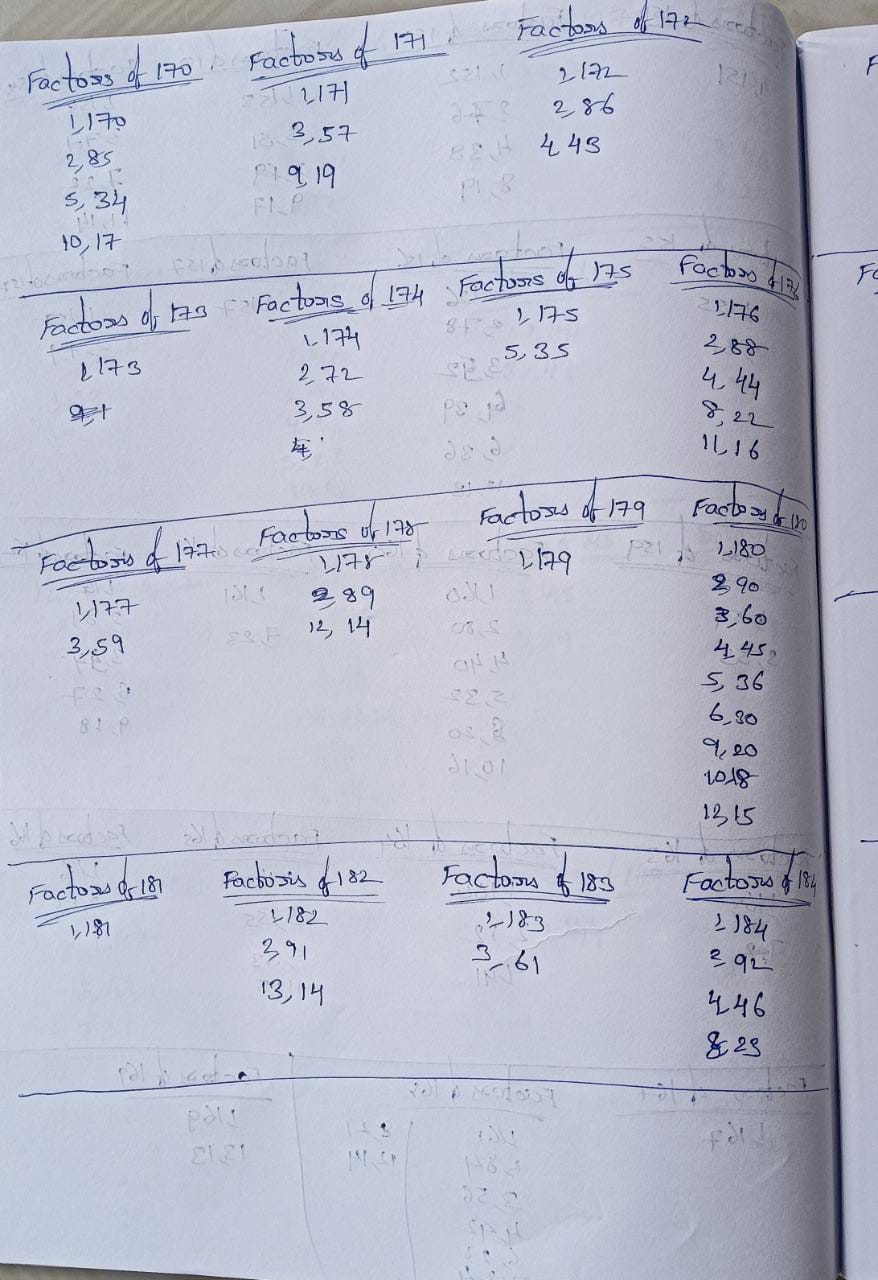 Factors of 170
1,170
2,85
5, 34
10, 17
Factors of 171
1,171
3, 57
9, 19
Factors of 172
1,172
2, 86
4, 43
Factors of 173
1,173
Factors of 174
1,174
2,72
3, 58
4,
Factors of 175
1,175
5, 35
Factors of 176
1,176
2,88
4, 44
8, 22
11, 16
Factors of 177
1,177
3,59
Factors of 178
1,178
2 89
12, 14
Factors of 179
1,179
Factors of 180
1,180
2,90
3,60
4,45
5, 36
6,30
9,20
10,18
12,15
Factors of 181
1,181
Factors of 182
1,182
2,91
13, 14
Factors of 183
1,183
3, 61
Factors of 184
1,184
2,92
4,46
8,23